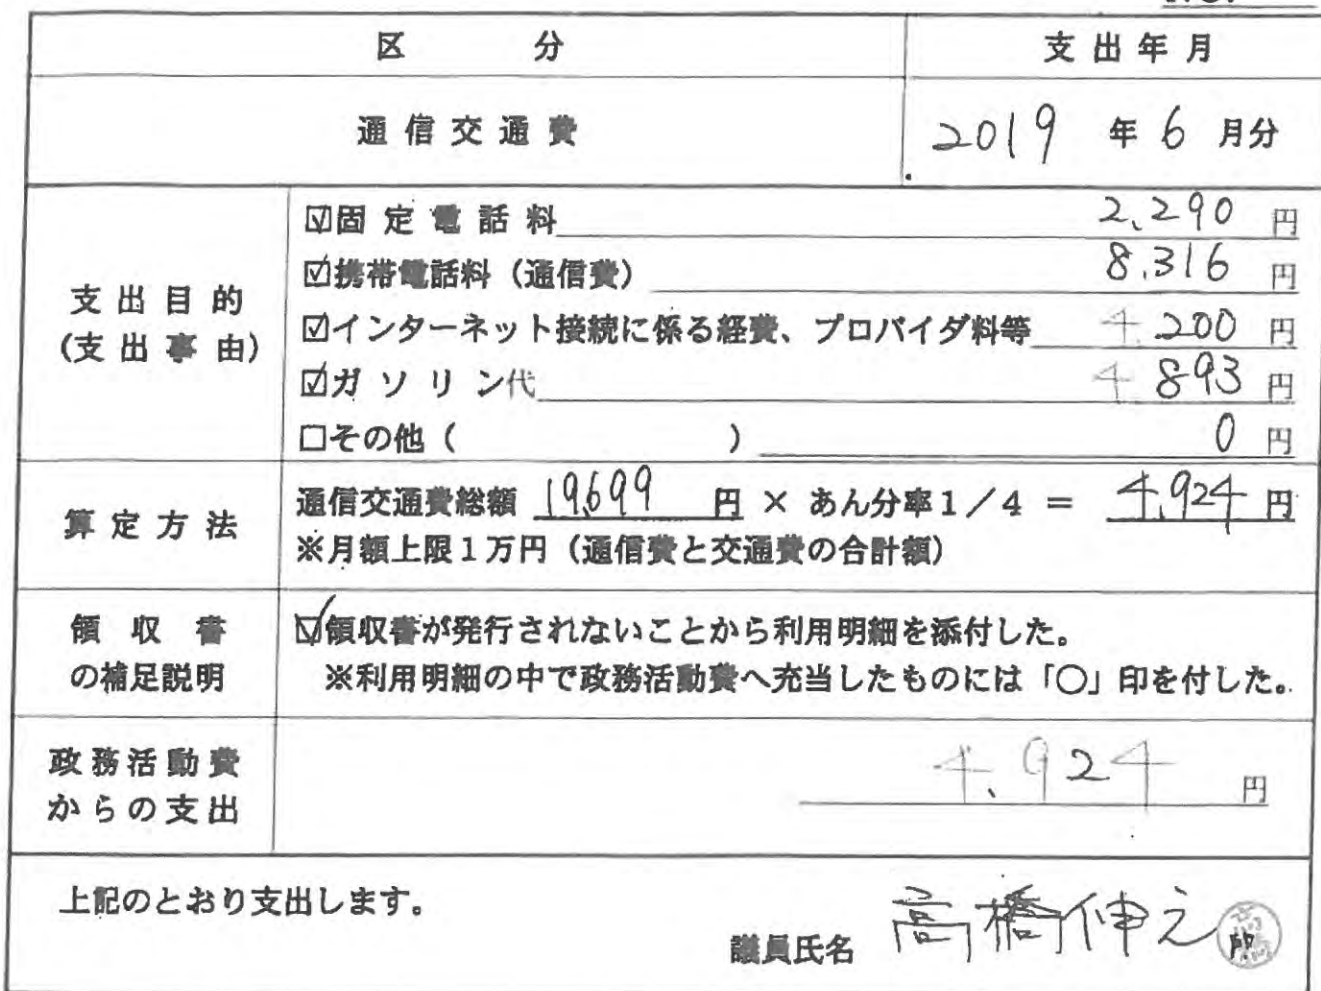 区 分 支出年月
通信交通費 2019 年 6 月分
支出目的
(支出事由)
☑固定電話料 2,290 円
☑携帯電話料（通信費） 8,316 円
☑インターネット接続に係る経費、プロバイダ料等 4,200 円
☑ガソリン代 4,893 円
□その他（ ） 0 円
算定方法
通信交通費総額 19,699 円 × あん分率1／4 ＝ 4,924 円
※月額上限1万円（通信費と交通費の合計額）
領収書
の補足説明
☑領収書が発行されないことから利用明細を添付した。
※利用明細の中で政務活動費へ充当したものには「○」印を付した。
政務活動費
からの支出
4,924 円
上記のとおり支出します。
議員氏名 高橋伸之 印